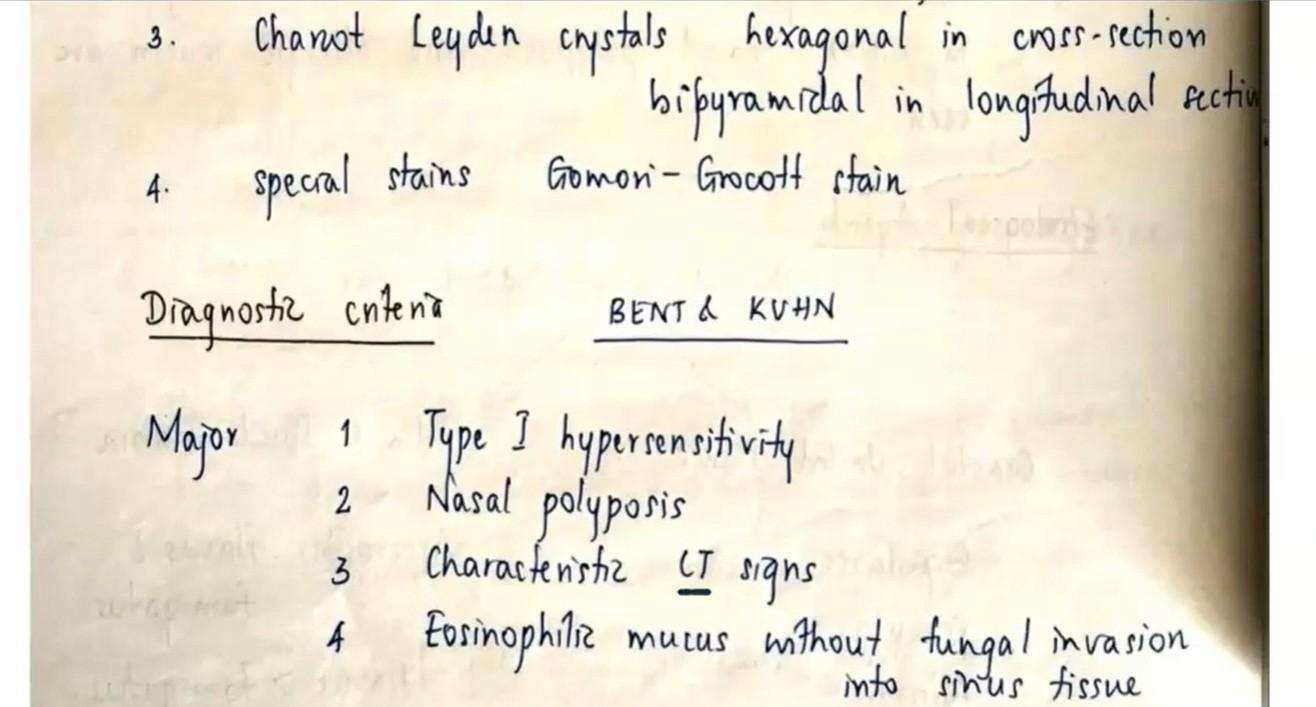 3. Charcot Leyden crystals hexagonal in cross-section
bipyramidal in longitudinal section
4. special stains Gomori- Grocott stain
Diagnostic criteria BENT & KUHN
Major 1 Type I hypersensitivity
2 Nasal polyposis
3 Characteristic CT signs
4 Eosinophilic mucus without fungal invasion
into sinus tissue